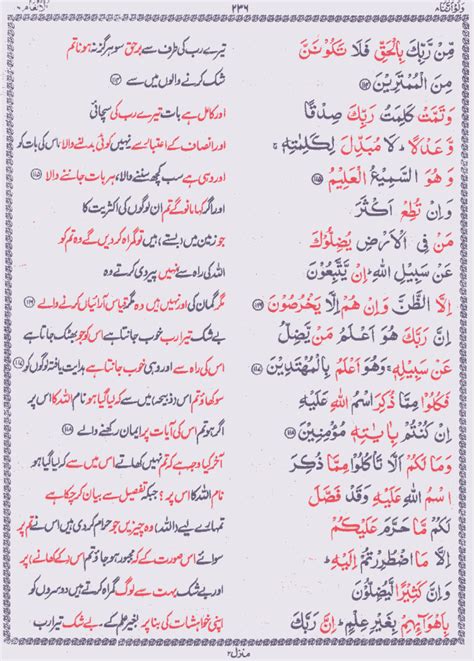 ولواننا
٢٣٦
الانعام
مِّن رَّبِّكَ بِالْحَقِّ فَلَا تَكُوْنَنَّ
مِنَ الْمُمْتَرِيْنَ ﴿١١٤﴾
وَتَمَّتْ كَلِمَتُ رَبِّكَ صِدْقًا
وَّعَدْلًا ؕ لَا مُبَدِّلَ لِكَلِمٰتِهٖ ۚ
وَهُوَ السَّمِيْعُ الْعَلِيْمُ ﴿١١٥﴾
وَاِنْ تُطِعْ اَكْثَرَ
مَنْ فِى الْاَرْضِ يُضِلُّوْكَ
عَنْ سَبِيْلِ اللّٰهِ ؕ اِنْ يَّتَّبِعُوْنَ
اِلَّا الظَّنَّ وَاِنْ هُمْ اِلَّا يَخْرُصُوْنَ ﴿١١٦﴾
اِنَّ رَبَّكَ هُوَ اَعْلَمُ مَنْ يَّضِلُّ
عَنْ سَبِيْلِهٖ ۚ وَهُوَ اَعْلَمُ بِالْمُهْتَدِيْنَ ﴿١١٧﴾
فَكُلُوْا مِمَّا ذُكِرَ اسْمُ اللّٰهِ عَلَيْهِ
اِنْ كُنْتُمْ بِاٰيٰتِهٖ مُؤْمِنِيْنَ ﴿١١٨﴾
وَمَا لَكُمْ اَلَّا تَاْكُلُوْا مِمَّا ذُكِرَ
اسْمُ اللّٰهِ عَلَيْهِ وَقَدْ فَصَّلَ
لَكُمْ مَّا حَرَّمَ عَلَيْكُمْ
اِلَّا مَا اضْطُرِرْتُمْ اِلَيْهِ ؕ
وَاِنَّ كَثِيْرًا لَّيُضِلُّوْنَ
بِاَهْوَآئِهِمْ بِغَيْرِ عِلْمٍ ؕ اِنَّ رَبَّكَ
تیرے رب کی طرف سے برحق سو ہرگز نہ ہونا تم
شک کرنے والوں میں سے ﴿١١٤﴾
اور کامل ہے بات تیرے رب کی سچائی
اور انصاف کے اعتبار سے نہیں کوئی بدلنے والا اس کی بات کو
اور وہی ہے سب کچھ سننے والا، ہر بات جاننے والا ﴿١١٥﴾
اور اگر کہا مانو گے تم ان لوگوں کی اکثریت کا
جو زمین میں (بستے) ہیں تو گمراہ کردیں گے وہ تم کو
اللہ کی راہ سے نہیں پیروی کرتے وہ
مگر گمان کی اور نہیں ہیں وہ مگر قیاس آرائیاں کرنے والے ﴿١١٦﴾
بے شک تیرا رب خوب جانتا ہے اس کو جو بھٹک جاتا ہے
اس کی راہ سے اور وہی خوب جانتا ہے ہدایت یافتہ لوگوں کو ﴿١١٧﴾
سو کھاؤ تم اس (ذبیحہ) میں سے کہ لیا گیا ہو نام اللہ کا اس پر
اگر ہو تم اس کی آیات پر ایمان رکھنے والے ﴿١١٨﴾
آخر کیا ہوگیا ہے تم کو کہ نہ کھاؤ تم اس میں سے کہ لیا گیا ہو
نام اللہ کا اس پر؟ جبکہ تفصیل سے بیان کرچکا ہے
تمہارے لیے (اللہ) وہ چیزیں جو حرام کردی ہیں اس نے تم پر
سوائے اس صورت کے کہ مجبور ہو جاؤ تم اس (کے کھانے) پر،
اور بے شک بہت سے لوگ گمراہ کرتے ہیں دوسروں کو
اپنی خواہشات کی بنا پر بغیر علم کے۔ بے شک تیرا رب
منزل ٢